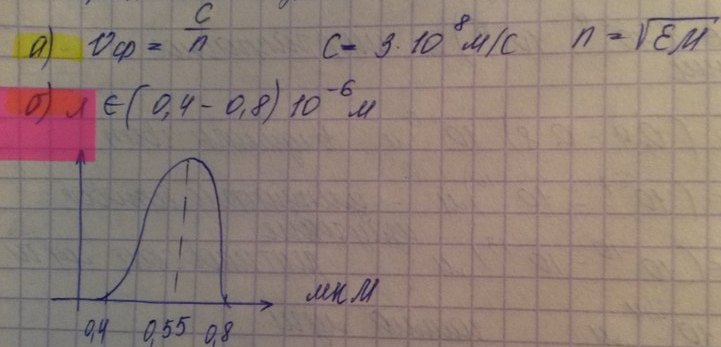 а) υф = c/n   C = 3·10⁸ м/с   n = √εμ
б) λ ∈ (0,4 - 0,8) 10⁻⁶ м
мкм
0,4 0,55 0,8